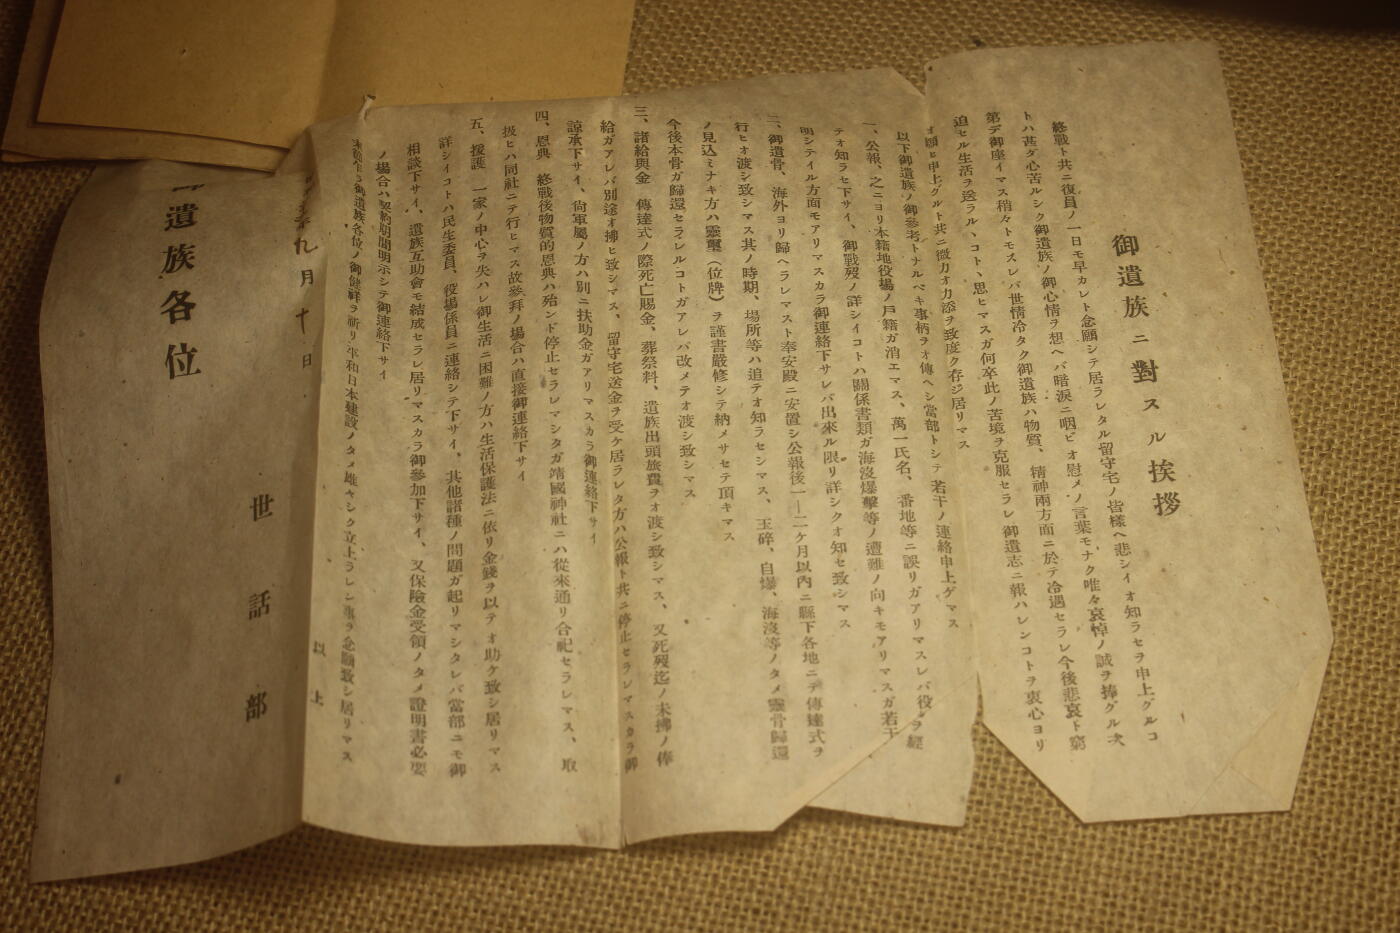 御遺族ニ對スル挨拶
終戰ト共ニ復員ノ一日モ早カレト念願シテ居ラレタル留守宅ノ皆樣ヘ悲シイオ知ラセヲ申上グルコ
トハ甚ダ心苦ルシク御遺族ノ御心情ヲ想ヘバ暗淚ニ咽ビオ慰メノ言葉モナク唯々哀悼ノ誠ヲ捧グル次
第デ御座イマス稍々トモスレバ世情冷タク御遺族ハ物質、精神兩方面ニ於テ冷遇セラレ今後悲哀ト窮
迫セル生活ヲ送ラルヽコトヽ思ヒマスガ何卒此ノ苦境ヲ克服セラレ御遺志ニ報ハレンコトヲ衷心ヨリ
オ願ヒ申上グルト共ニ微力オ力添ヲ致度ク存ジ居リマス
以下御遺族ノ御參考トナルベキ事柄ヲオ傳ヘシ當部トシテ若干ノ連絡申上ゲマス
一、公報、之ニヨリ本籍地役場ノ戶籍ガ消エマス、萬一氏名、番地等ニ誤リガアリマスレバ役場ヲ經
テオ知ラセ下サイ、御戰歿ノ詳シイコトハ關係書類ガ海沒爆擊等ノ遭難ノ向キモアリマスガ若干
明シテイル方面モアリマスカラ御連絡下サレバ出來ル限リ詳シクオ知セ致シマス
二、御遺骨、海外ヨリ歸ヘラレマスト奉安殿ニ安置シ公報後一―二ケ月以內ニ縣下各地ニテ傳達式ヲ
行ヒオ渡シ致シマス其ノ時期、場所等ハ追テオ知ラセシマス、玉碎、自爆、海沒等ノタメ靈骨歸還
ノ見込ミナキ方ハ靈璽(位牌)ヲ謹書嚴修シテ納メサセテ頂キマス
今後本骨ガ歸還セラレルコトガアレバ改メテオ渡シ致シマス
三、諸給與金 傳達式ノ際死亡賜金、葬祭料、遺族出頭旅費ヲオ渡シ致シマス、又死歿迄ノ未拂ノ俸
給ガアレバ別途オ拂ヒ致シマス、留守宅送金ヲ受ケ居ラレタ方ハ公報ト共ニ停止セラレマスカラ御
諒承下サイ、尙軍屬ノ方ハ別ニ扶助金ガアリマスカラ御連絡下サイ
四、恩典 終戰後物質的恩典ハ殆ンド停止セラレマシタガ靖國神社ニハ從來通リ合祀セラレマス、取
扱ヒハ同社ニテ行ヒマス故參拜ノ場合ハ直接御連絡下サイ
五、援護 一家ノ中心ヲ失ハレ御生活ニ困難ノ方ハ生活保護法ニ依リ金錢ヲ以テオ助ケ致シ居リマス
詳シイコトハ民生委員、役場係員ニ連絡シテ下サイ、其他諸種ノ問題ガ起リマシタレバ當部ニモ御
相談下サイ、遺族互助會モ結成セラレ居リマスカラ御參加下サイ、又保險金受領ノタメ證明書必要
ノ場合ハ契約期間明示シテ御連絡下サイ
末筆乍ラ御遺族各位ノ御健祥ヲ祈リ平和日本建設ノタメ雄々シク立上ラレン事ヲ念願致シ居リマス
以上
九月十日
世話部
遺族各位